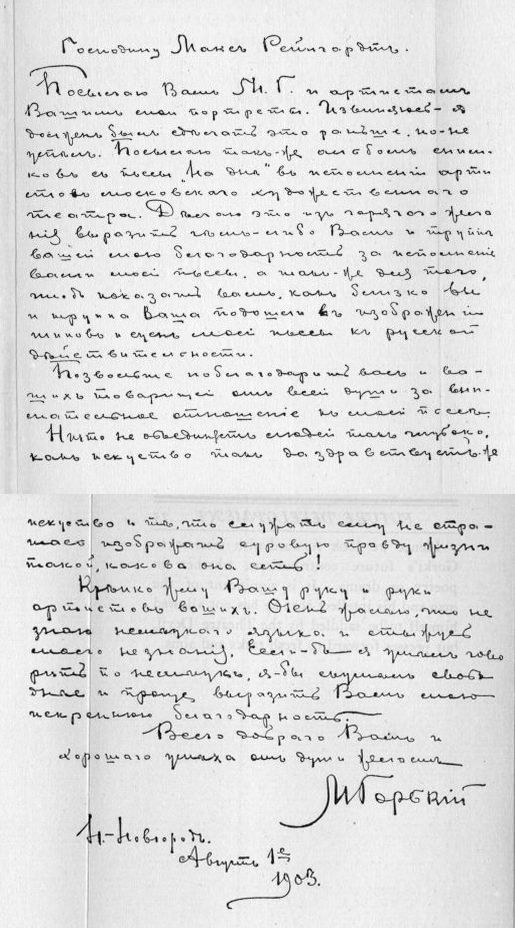 Господину Максъ Рейнгардтъ.
Посылаю Вамъ М. Г. и артистамъ
Вашимъ мои портреты. Извиняюсь – я
долженъ былъ сдѣлать это раньше, но – не
успѣлъ. Посылаю такъ-же альбомъ сним-
ковъ съ пьесы „На дне“ въ исполненіи арти
стовъ московскаго художественнаго
театра. Дѣлаю это изъ горячаго жела
нія выразить чѣмъ-либо Вамъ и труппѣ
вашей мою благодарность за исполненіе
вами моей пьесы, а такъ-же для того,
чтобъ показать вамъ, какъ близко вы
и труппа Ваша подошли въ изображеніи
типовъ и сценъ моей пьесы къ русской
дѣйствительности.
Позвольте поблагодарить васъ и ва-
шихъ товарищей отъ всей души за вни-
мательное отношеніе къ моей пьесѣ.
Ничто не объединяетъ людей такъ глубоко,
какъ искуство – такъ да здравствуетъ-же
искуство и тѣ, что служатъ ему не стра-
шась изображать суровую правду жизни
такой, какова она есть!
Крѣпко жму Вашу руку и руки
артистовъ вашихъ. Очень жалѣю, что не
знаю немецкаго языка и стыжусь
моего незнанія. Если-бъ я умѣлъ гово
рить по немецки, я-бы сумѣлъ свобо
днѣе и проще выразить Вамъ мою
искреннюю благодарность.
Всего добраго Вамъ и
хорошаго успѣха отъ души желаю
М Горькій
Н.-Новгородъ.
Августъ 1е
1903.